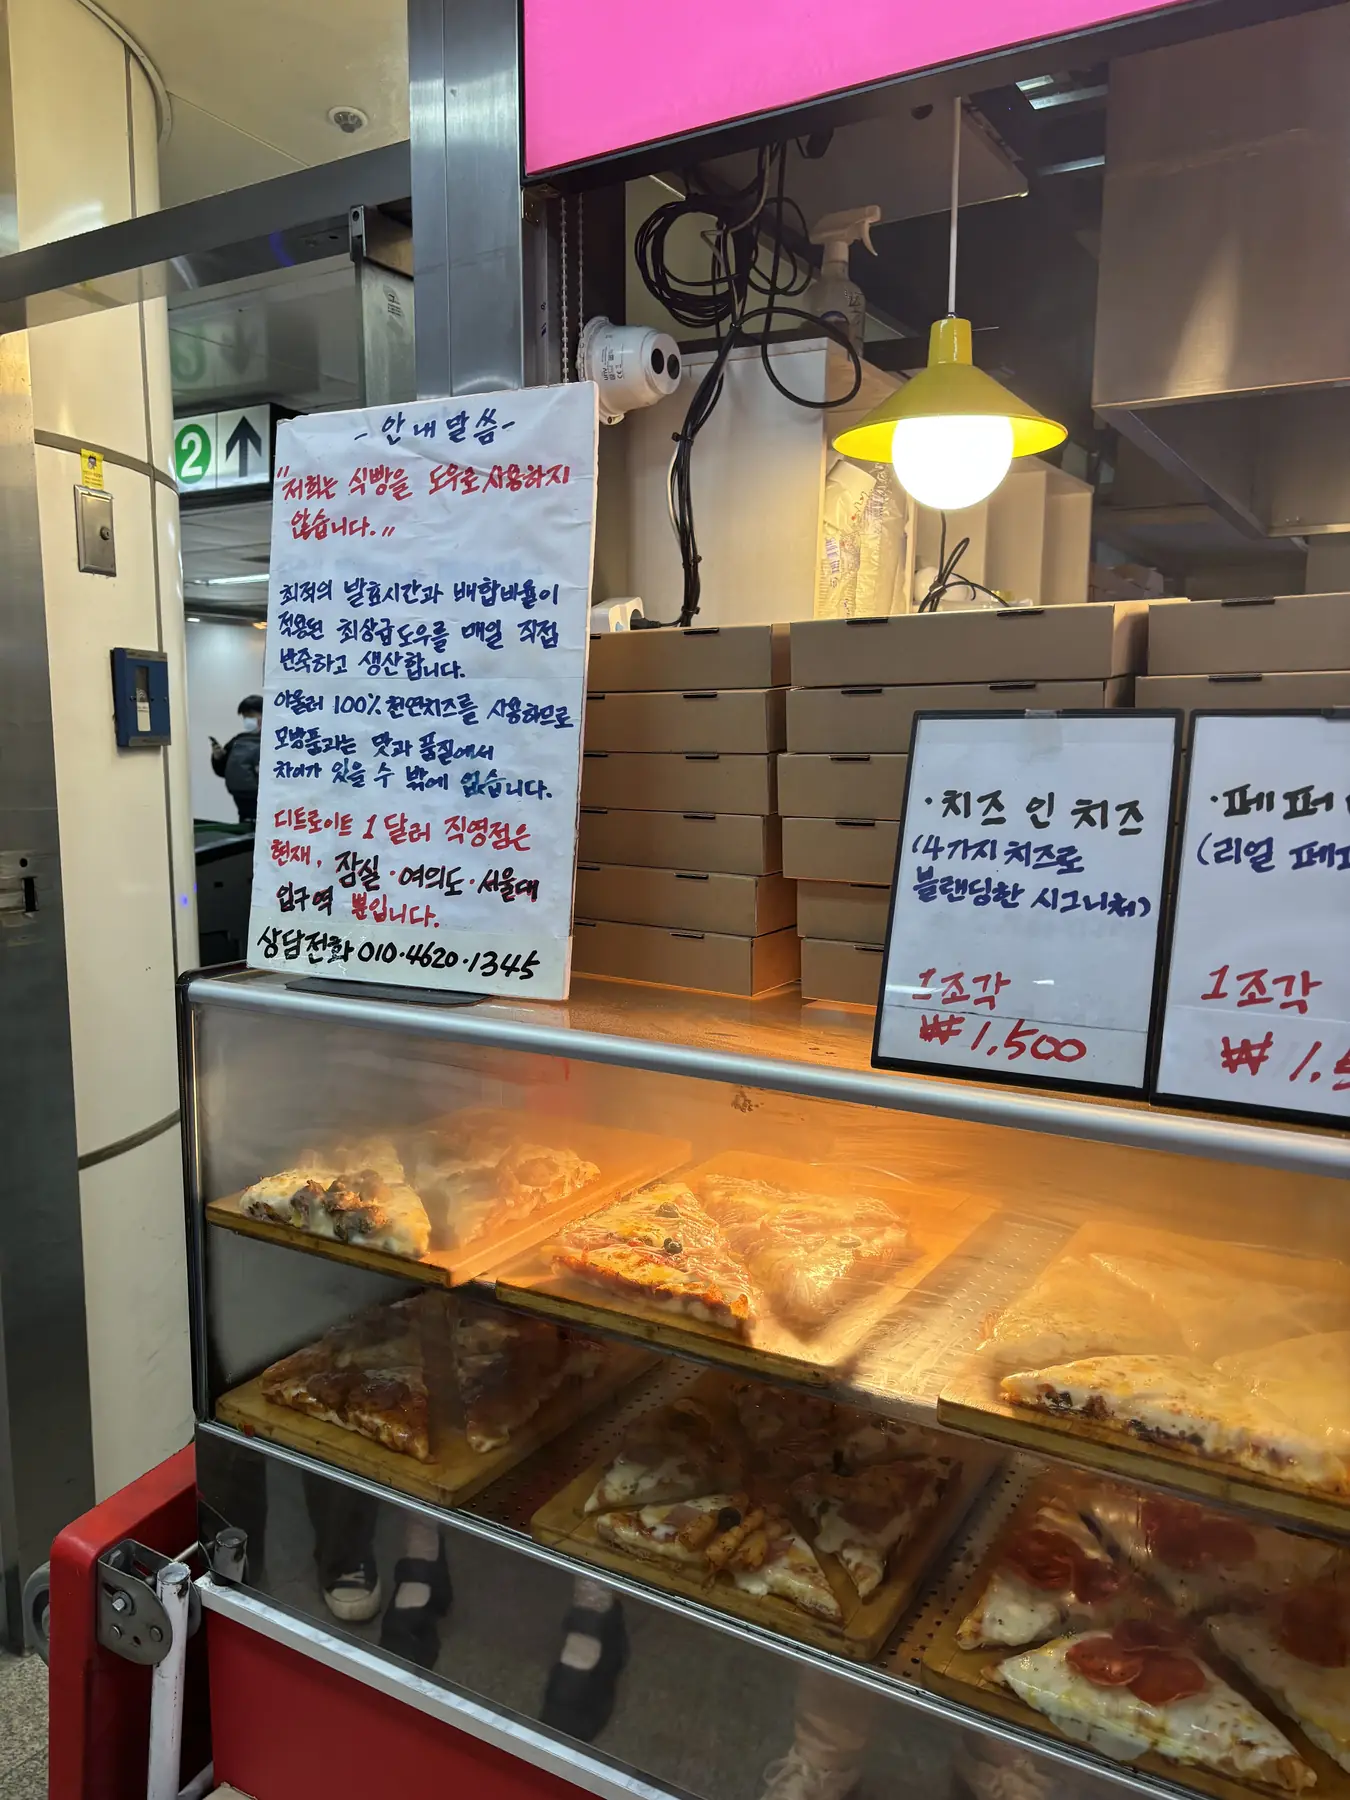 2
- 안내말씀 -
"저희는 식빵을 도우로 사용하지
않습니다."
최적의 발효시간과 배합비율이
적용된 최상급도우를 매일 직접
반죽하고 생산합니다.
아울러 100% 천연치즈를 사용하므로
모방품과는 맛과 품질에서
차이가 있을 수 밖에 없습니다.
디트로이트 1달러 직영점은
현재, 잠실·여의도·서울대
입구역 뿐입니다.
상담전화 010·4620·1345
·치즈 인 치즈
(4가지 치즈로
블랜딩한 시그니처)
1조각
₩1,500
·페퍼
(리얼
1조각
₩1.5